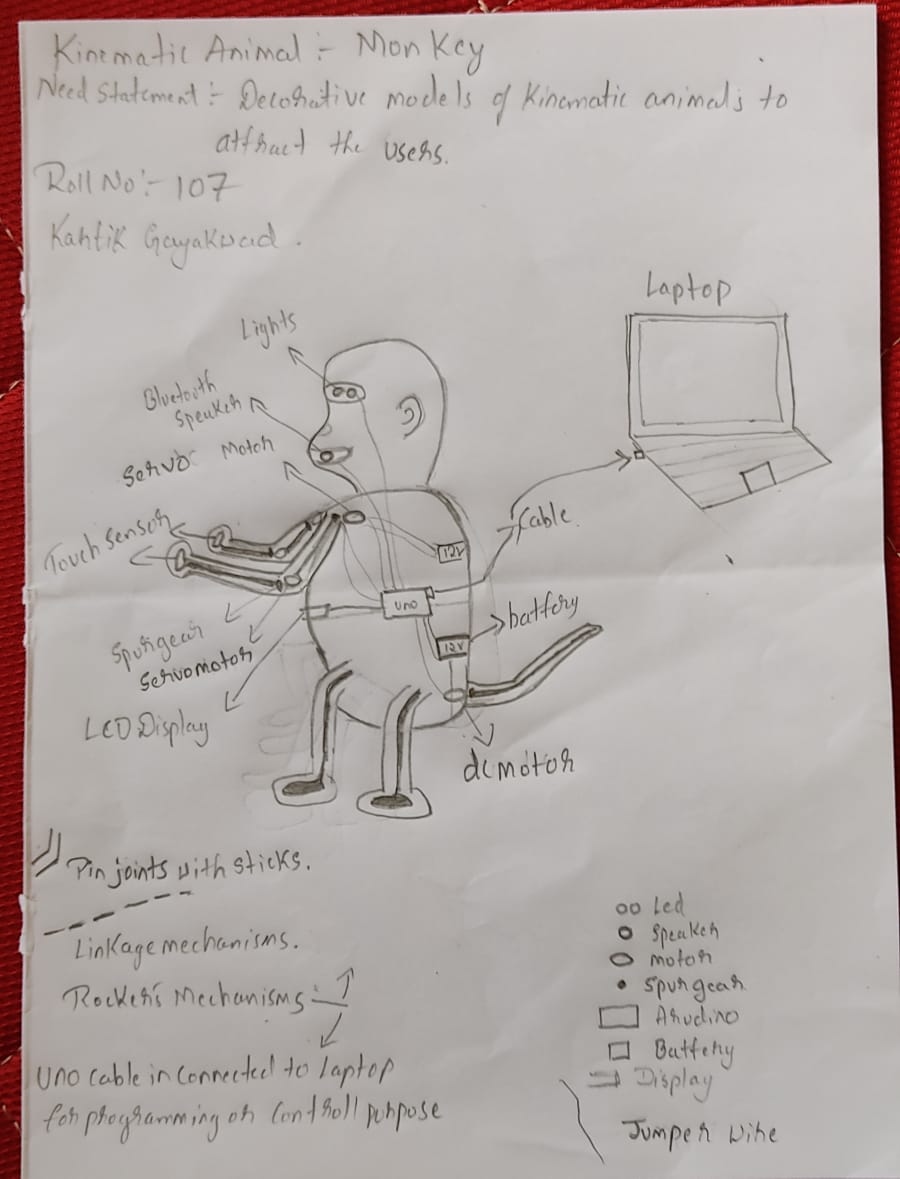 Kinematic Animal :- Monkey
Need Statement :- Decorative models of Kinematic animals to
attract the users.
Roll No :- 107
Kartik Gayakwad .
Laptop
Lights
Bluetooth
Speaker
Servo Motor
Touch Sensor
Cable
12V
UNO
battery
12V
Spurgear
Servomotor
LCD Display
dc motor
Pin joints with sticks.
Linkage mechanisms.
Rocker's Mechanisms :-
UNO cable in connected to laptop
for programming or controll purpose
Led
Speaker
motor
Spurgear
Arudino
Battery
Display
Jumper wire